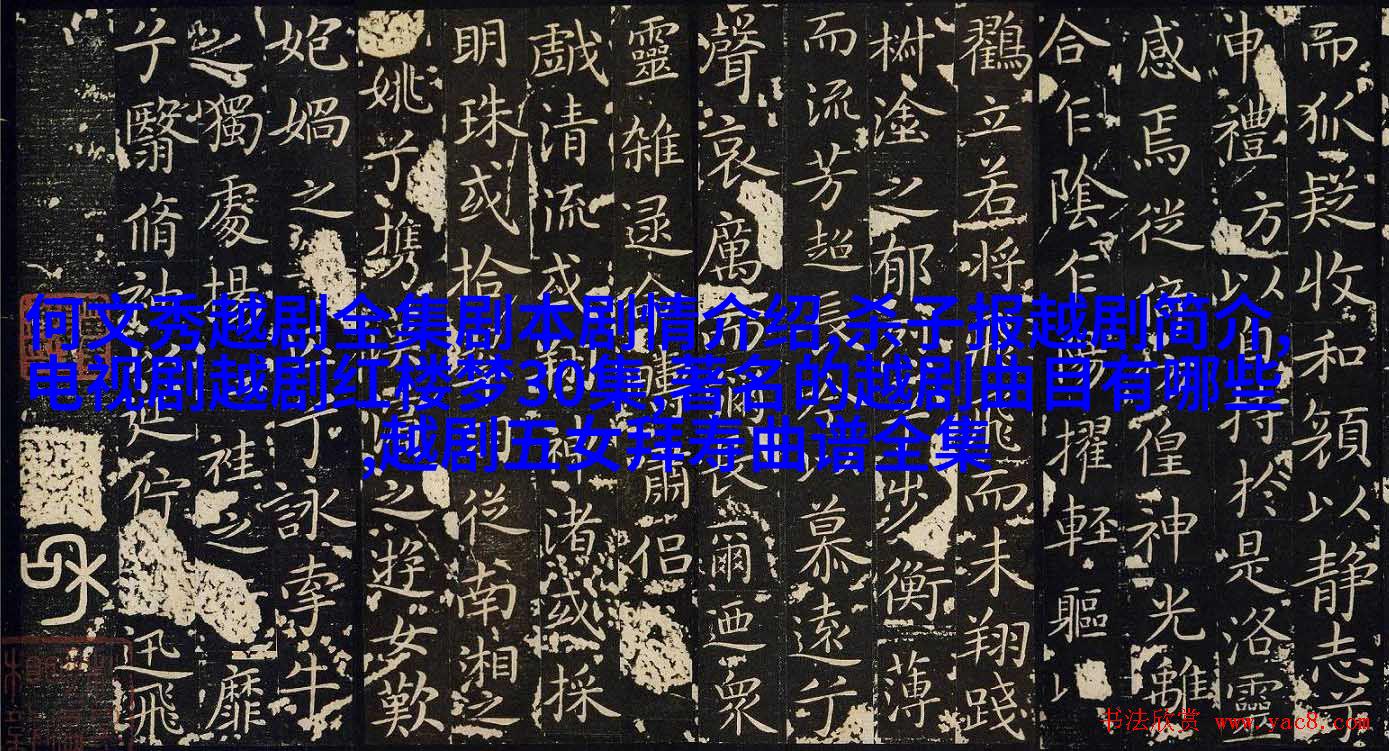 而狐疑收和顏以静志兮
申禮方以自持於是洛靈
感焉徙倚傍偟神光離
合乍陰乍陽擢輕軀以
鸛立若將飛而未翔踐
椒塗之郁步衡薄
而流芳超長以慕遠兮
聲哀厲而彌長爾迺眾
靈雜遝命嘯侶
戲清流或翔神渚或採
明珠或拾從南湘之
姚兮攜之遊女歎
媧之兮詠牽牛
之獨處揚袿之靡
兮翳脩袖延佇迅飛
何文秀越剧全集剧本剧情介绍,杀子报越剧简介,
电视剧越剧红楼梦30集,著名的越剧曲目有哪些
,越剧五女拜寿曲谱全集
书法欣赏 www.yac8.com